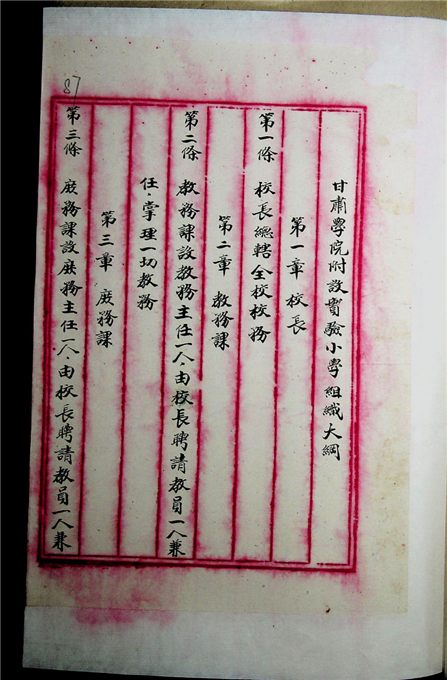 甘肅學院附設實驗小學組織大綱
第一章 校長
第一條 校長總轄全校校務
第二章 教務課
第二條 教務課設教務主任一人·由校長聘請教員一人兼
任·掌理一切教務
第三章 庶務課
第三條 庶務課設庶務主任一人·由校長聘請教員一人兼
87